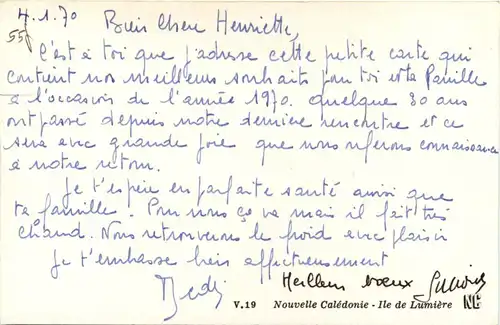 4.1.70 Bien Chere Henriette,
55f
C'est à toi que j'adresse cette petite carte qui
contient nos meilleurs souhaits pour toi et ta famille
à l'occasion de l'année 1970. Quelque 30 ans
ont passé depuis notre dernière rencontre et ce
sera avec grande joie que nous referons connaissance
à notre retour.
Je t'espère en parfaite santé ainsi que
ta famille. Pour nous ça va mais il fait très
chaud. Nous retrouverons le froid avec plaisir
Je t'embrasse bien affectueusement
Meilleurs voeux
V.19 Nouvelle Calédonie - Ile de Lumière NC